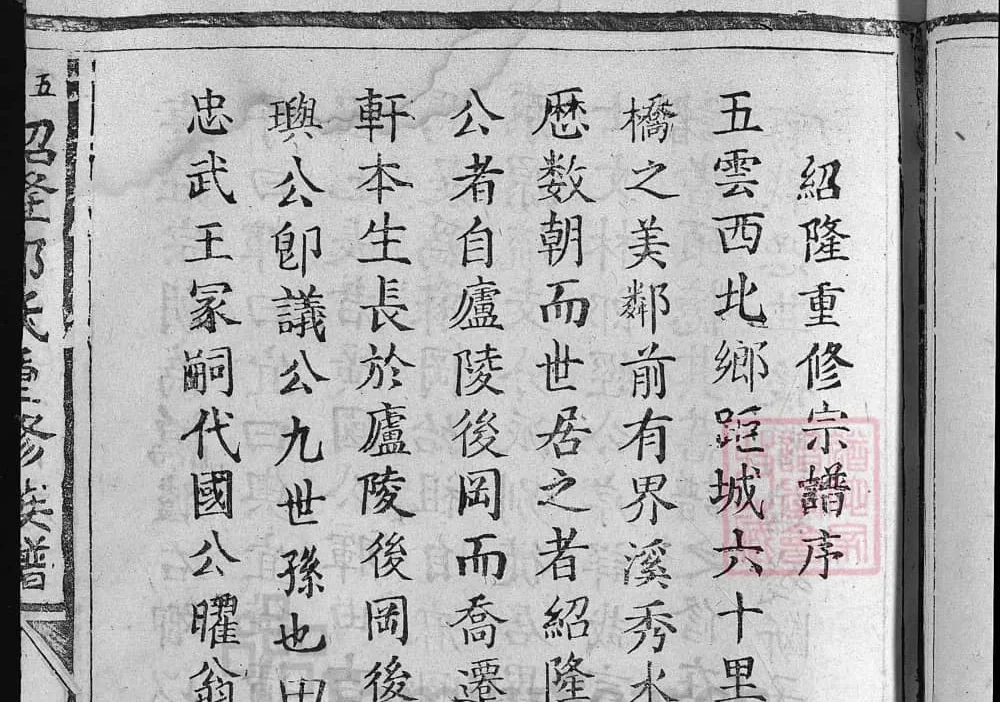 紹隆重修宗譜序
五雲西北鄉距城六十里
橋之美鄰前有界溪秀水
厯数朝而世居之者紹隆
公者自廬陵後岡而喬遷
軒本生長於廬陵後岡後
璵公卽議公九世孫也田
忠武王冡嗣代國公曜翁
五
紹隆郭氏重修族譜